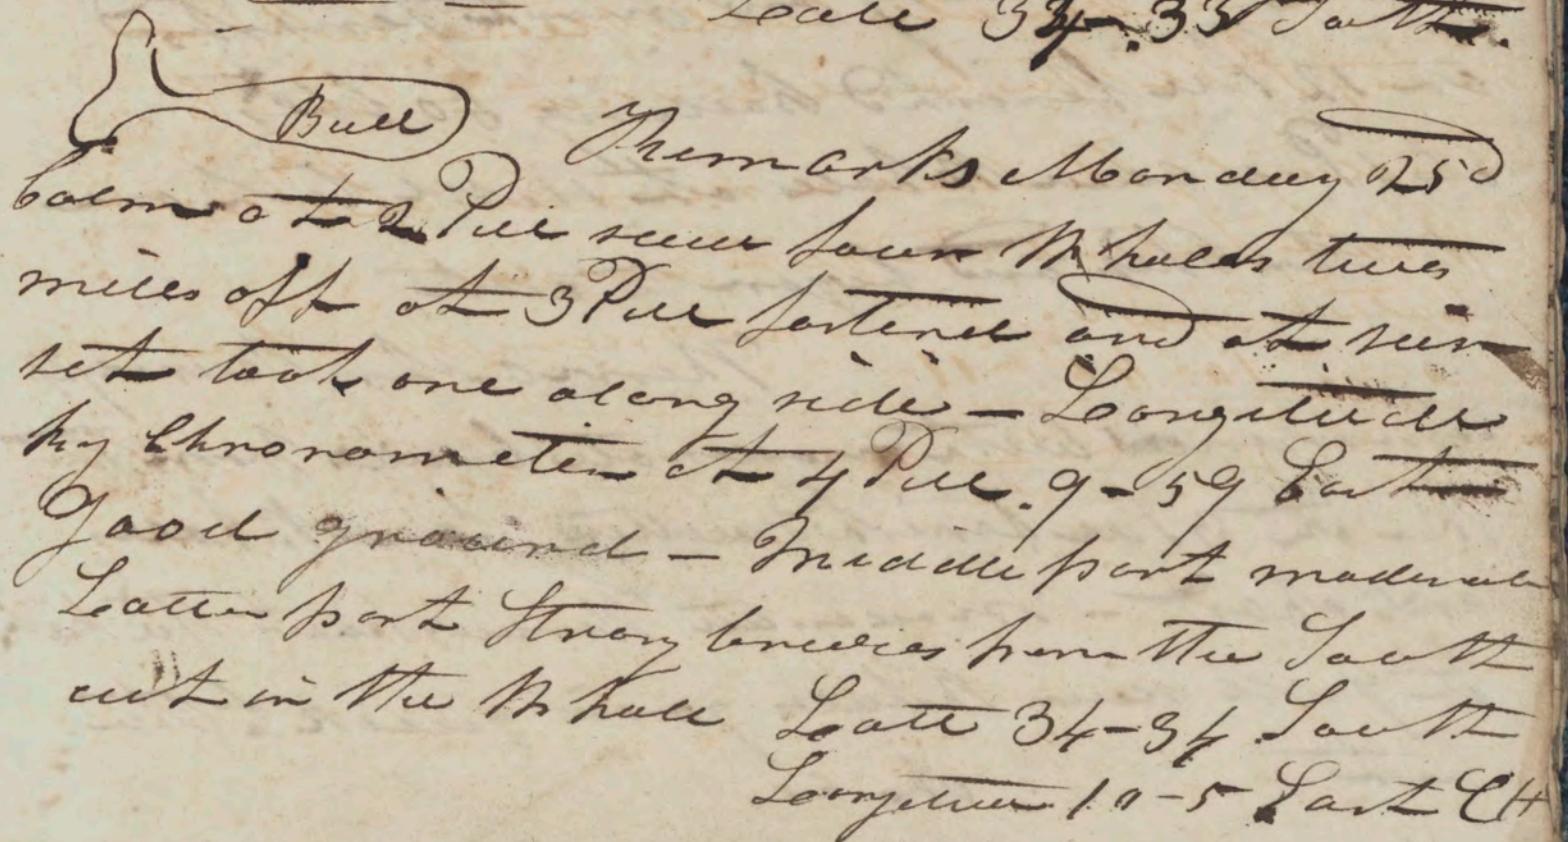 Latt 34-33 South.
Bull
Remarks Monday 25
Calm at 2 PM saw four Whales two
miles off at 3 PM fastened and at sun
set took one along side - Longitude
by Chronometer at 4 PM. 9-59 East
Good ground - Middle part moderate
Latter part Strong breezes from the South
cut in the Whale Latt 34-34 South
Longitude 10-5 East CH